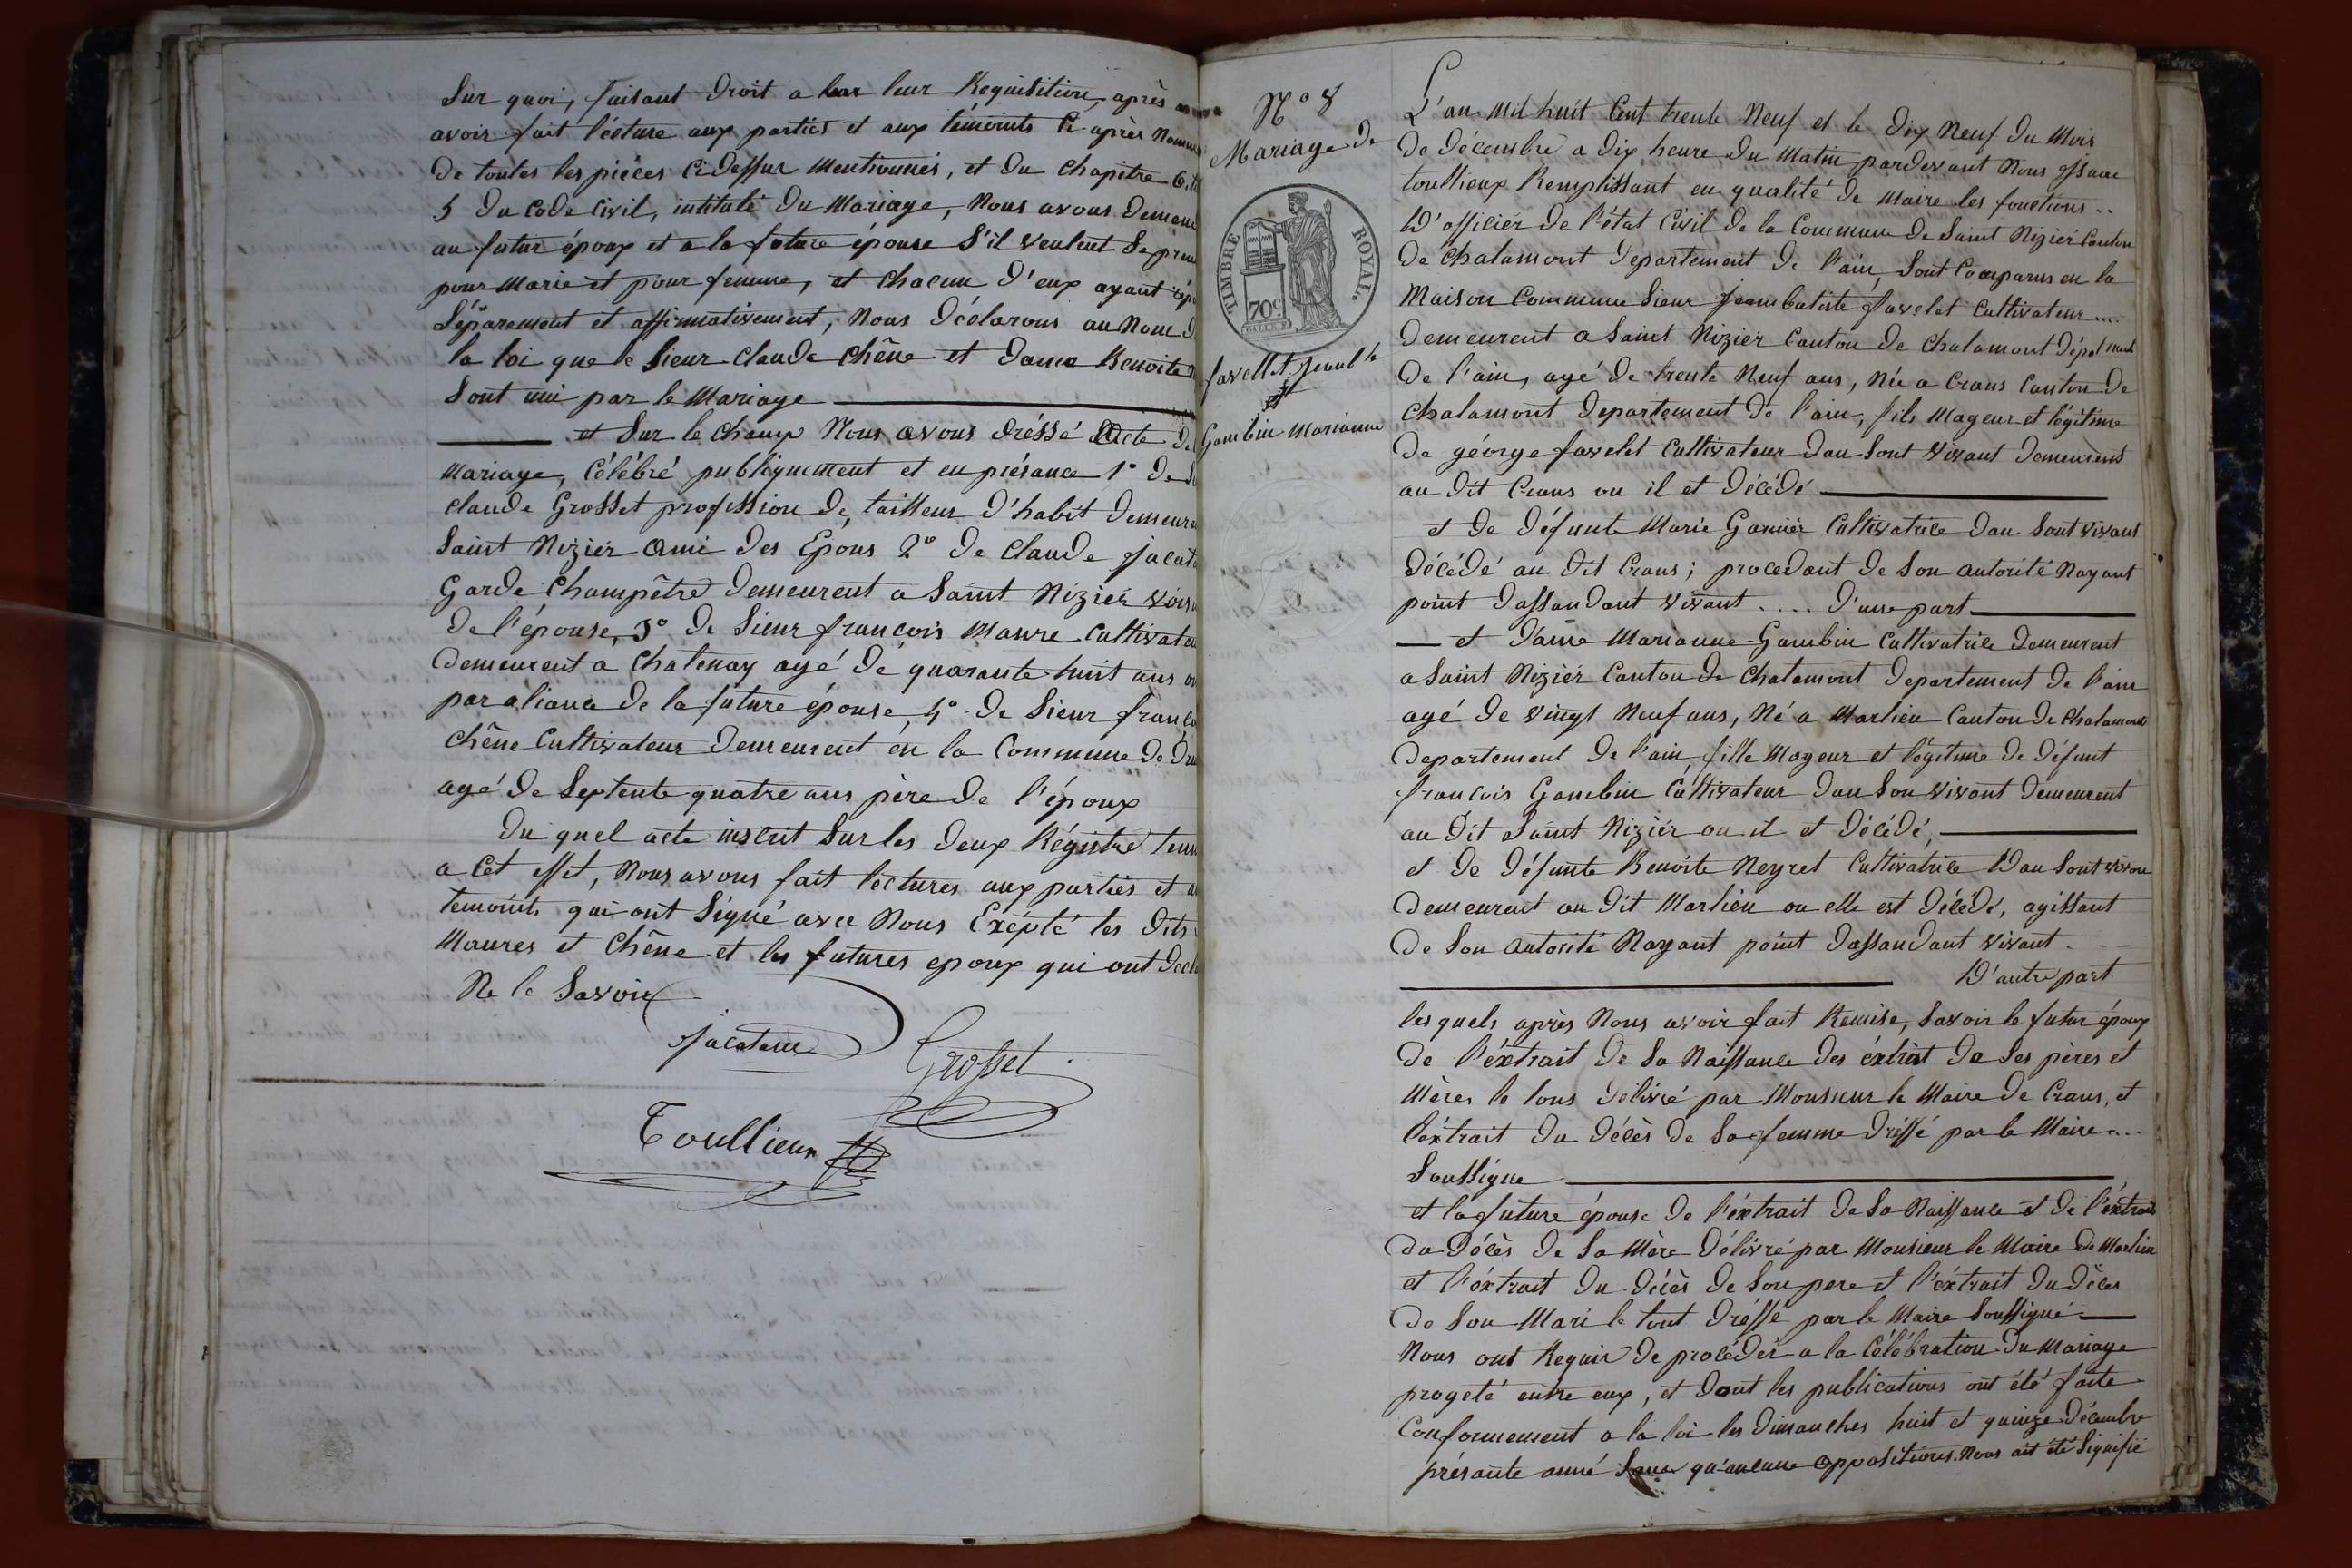 Sur quoi, faisant Droit a leur Requisitien, après
avoir fait lécture aux partiés et aux témoints Ci après
De toutes les piéces Ci Dessur Mentionnés, et Du Chapitre
5 Du Code Civil, intitulé Du Mariage, Nous avons
au futur époux et a la future épouse S'il veulent Se
pour Marie et pour femme, et Chacun D'eux ayant
Séparement et affirmativement, Nous Déclarons au Nom
la loi que le Sieur Claude Chêne et Dame Benoite
Sont uni par le Mariage
et Sur le Champ Nous avons dréssé Acte
Mariage, Célébré publiquement et en présance 1° De
Claude Grosset profession De tailleur D'habit
Saint Nizier Ami Des Epous 2° De Claude
Garde Champêtre Demeurent a Saint Nizier
De l'épouse, 3° De Sieur francois Maure
Demeurent a Chatenay agé De quarante huit ans
par aliance De la future épouse, 4° De Sieur
Chêne Cultivateur Demeurent én la Commune De
agé De Septente quatre ans père De l'époux
Du quel acte inscrit Sur les Deux Régistre
a Cet effet, Nous avons fait lectures aux partiés et
temoints qui ont Signé avec Nous Exépté les Dits
Maures et Chêne et les futures epoux qui ont
Ne le Savoir
Grosset
Toullieux
N° 8
Mariage De
TIMBRE ROYAL.
70c
favellet Jeanbte
et
Gambin Marianne
L'an Mil huit Cent trente Neuf et le Dix Neuf Du Mois
De Décembre a Dix heure Du Matin pardevant Nous
toullieux Remplissant en qualité De Maire les fonctions
D'officiér De l'état Civil De la Commune De Saint Nizier Canton
De Chalamont Departement De l'ain, Sont Comparus en la
Maison Commune Sieur Jeanbatiste favelet Cultivateur
Demeurent a Saint Nizier Canton De Chalamont
De l'ain, agé De trente Neuf ans, Née a Crans Canton De
Chalamont Departement De l'ain, fils Mageur et légitime
De géorge favelet Cultivateur Dan Sont Vivant Demeurent
au Dit Crans ou il et Décédé
et De Défunte Marie Garnier Cultivatrice Dan Sont Vivant
Décédé au Dit Crans; procedant De Son autorité Nayant
point Dassandant Vivant .... D'une part
et Dame Marianne Gambin Cultivatrice Demeurent
a Saint Nizier Canton De Chalamont Departement De l'ain
agé De Vingt Neuf ans, Né a Marlieu Canton De Chalamont
Departement De l'ain fille Mageur et légitime De Défunt
francois Gambin Cultivateur Dan Son Vivant Demeurent
au Dit Saint Nizier ou il et Décédé,
et De Défunte Benoite Neyret Cultivatrice Dan Sont
Demeurent au Dit Marlieu ou elle est Décédé, agissant
De Son autorité Nayant point Dassandant Vivant
D'autre part
les quels après Nous avoir fait Remise, Savoir le futur époux
De l'éxtrait De Sa Naissance Des éxtrait De Ses pères et
Mères le tous Délivré par Monsieur le Maire De Crans, et
l'éxtrait Du Décès De Sa femme Dréssé par le Maire...
Soussigne
et la future épouse De l'éxtrait De Sa Naissance et De l'éxtrait
Du Décès De Sa Mère Délivré par Monsieur le Maire De Marlieu
et l'éxtrait Du Décès De Son pere et l'éxtrait Du Décès
De Son Mari le tout Dréssé par le Maire Soussigné
Nous ont Requir De procéder a la Célébration Du Mariage
progeté entre eux, et Dont les publications ont été faite
Conformement a la loi les Dimanches huit et quinze Décembre
présante anné Sans qu'aucune oppositiones Nous ait été Signifié